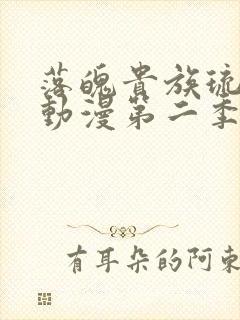 落魄貴族琉
動漫第二季
有耳朵的阿東